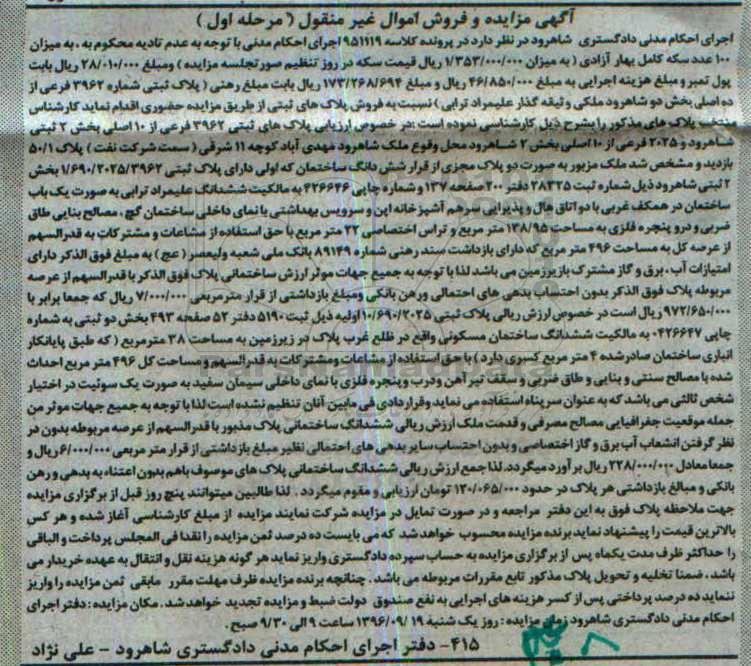 آگهی مزایده و فروش اموال غیر منقول ( مرحله اول )
اجرای احکام مدنی دادگستری شاهرود در نظر دارد در پرونده کلاسه ۹۵۱۱۱۹ اجرای احکام مدنی با توجه به عدم تادیه محکوم به ، به میزان
۱۰۰ عدد سکه کامل بهار آزادی ( به میزان ۱/۳۵۳/۰۰۰/۰۰۰ ریال قیمت سکه در روز تنظیم صورتجلسه مزایده ) ومبلغ ۲۸/۰۱۰/۰۰۰ ریال بابت
پول تمبر و مبلغ هزینه اجرایی به مبلغ ۴۶/۸۵۰/۰۰۰ ریال و مبلغ ۱۷۳/۲۶۸/۶۹۴ ریال بابت مبلغ رهنی ( پلاک ثبتی شماره ۳۹۶۲ فرعی از
ده اصلی بخش دو شاهرود ملکی و ثیقه گذار علیمراد ترابی ) نسبت به فروش پلاک های ثبتی از طریق مزایده حضوری اقدام نماید کارشناس
منتخب پلاک های مذکور را بشرح ذیل کارشناسی نموده است :در خصوص ارزیابی پلاک های ثبتی ۳۹۶۲ فرعی از ۱۰ اصلی بخش ۲ ثبتی
شاهرود و ۲۰۲۵ فرعی از ۱۰ اصلی بخش ۲ شاهرود محل وقوع ملک شاهرود مهدی آباد کوچه ۱۱ شرقی ( سمت شرکت نفت ) پلاک ۵۰/۱
بازدید و مشخص شد ملک مزبور به صورت دو پلاک مجزی از قرار شش دانگ ساختمان که اولی دارای پلاک ثبتی ۱/۶۹۰/۲۰۲۵/۳۹۶۲ بخش
۲ ثبتی شاهرود ذیل شماره ثبت ۲۸۳۲۵ دفتر ۲۰۰ صفحه ۱۳۷ و شماره چاپی ۴۲۶۶۴۶ به مالکیت ششدانگ علیمراد ترابی به صورت یک باب
ساختمان در همکف غربی با دو اتاق هال و پذیرایی سرهم آشپزخانه اپن و سرویس بهداشتی با نمای داخلی ساختمان گچ ، مصالح بنایی طاق
ضربی و درو پنجره فلزی به مساحت ۱۳۸/۹۵ متر مربع و تراس اختصاصی ۲۲ متر مربع با حق استفاده از مشاعات و مشترکات به قدرالسهم
از عرصه کل به مساحت ۴۹۶ متر مربع که دارای بازداشت سند رهنی شماره ۸۹۱۴۹ بانک ملی شعبه ولیعصر ( عج ) به مبلغ فوق الذکر دارای
امتیازات آب ، برق و گاز مشترک بازیرزمین می باشد لذا با توجه به جمیع جهات موثر ارزش ساختمانی پلاک فوق الذکر با قدرالسهم از عرصه
مربوطه پلاک فوق الذکر بدون احتساب بدهی های احتمالی ورهن بانکی ومبلغ بازداشتی از قرار مترمربعی ۷/۰۰۰/۰۰۰ ریال که جمعا برابر با
۹۷۲/۶۵۰/۰۰۰ ریال است در خصوص ارزش ریالی پلاک ثبتی ۱۰/۶۹۰/۲۰۲۵ اولیه ذیل ثبت ۵۱۹۰ دفتر ۵۲ صفحه ۴۹۳ بخش دو ثبتی به شماره
چاپی ۰۴۲۶۶۴۷ به مالکیت ششدانگ ساختمان مسکونی واقع در ظلع غرب پلاک در زیرزمین به مساحت ۳۸ مترمربع ( که طبق پایانکار
انباری ساختمان صادرشده ۴ متر مربع کسری دارد ) با حق استفاده از مشاعات ومشترکات به قدرالسهم و مساحت کل ۴۹۶ متر مربع احداث
شده با مصالح سنتی و بنایی و طاق ضربی و سقف تیر آهن ودرب و پنجره فلزی با نمای داخلی سیمان سفید به صورت یک سوئیت در اختیار
شخص ثالثی می باشد که به عنوان سرپناه استفاده می نماید وقراردادی فی مابین آنان تنظیم نشده است لذا با توجه به جمیع جهات موثر من
جمله موقعیت جغرافیایی مصالح مصرفی و قدمت ملک ارزش ریالی ششدانگ ساختمانی پلاک مذبور با قدرالسهم از عرصه مربوطه بدون در
نظر گرفتن انشعاب آب برق و گاز اختصاصی و بدون احتساب سایر بدهی های احتمالی نظیر مبلغ بازداشتی از قرار متر مربعی ۶/۰۰۰/۰۰۰ریال و
جمعا معادل ۲۲۸/۰۰۰/۰۰۰ ریال بر آورد میگردد. لذا جمع ارزش ریالی ششدانگ ساختمانی پلاک های موصوف باهم بدون اعتناء به بدهی و رهن
بانکی و مبالغ بازداشتی هر پلاک در حدود ۱۳۰/۰۶۵/۰۰۰ تومان ارزیابی و مقوم میگردد . لذا طالبین میتوانند پنج روز قبل از برگزاری مزایده
جهت ملاحظه پلاک فوق به این دفتر مراجعه و در صورت تمایل در مزایده شرکت نمایند مزایده از مبلغ کارشناسی آغاز شده و هر کس
بالاترین قیمت را پیشنهاد نماید برنده مزایده محسوب خواهد شد که می بایست ده درصد ثمن مزایده را نقدا فی المجلس پرداخت و الباقی
را حداکثر ظرف مدت یکماه پس از برگزاری مزایده به حساب سپرده دادگستری واریز نماید هر گونه هزینه نقل و انتقال به عهده خریدار می
باشد ، ضمنا تخلیه و تحویل پلاک مذکور تابع مقررات مربوطه می باشد . چنانچه برنده مزایده ظرف مهلت مقرر مابقی ثمن مزایده را واریز
ننماید ده درصد پرداختی پس از کسر هزینه های اجرایی به نفع صندوق دولت ضبط و مزایده تجدید خواهد شد. مکان مزایده : دفتر اجرای
احکام مدنی دادگستری شاهرود زمان مزایده : روز یک شنبه ۱۳۹۶/۰۹/۱۹ ساعت ۹ الی ۹/۳۰ صبح .
۴۱۵- دفتر اجرای احکام مدنی دادگستری شاهرود - علی نژاد